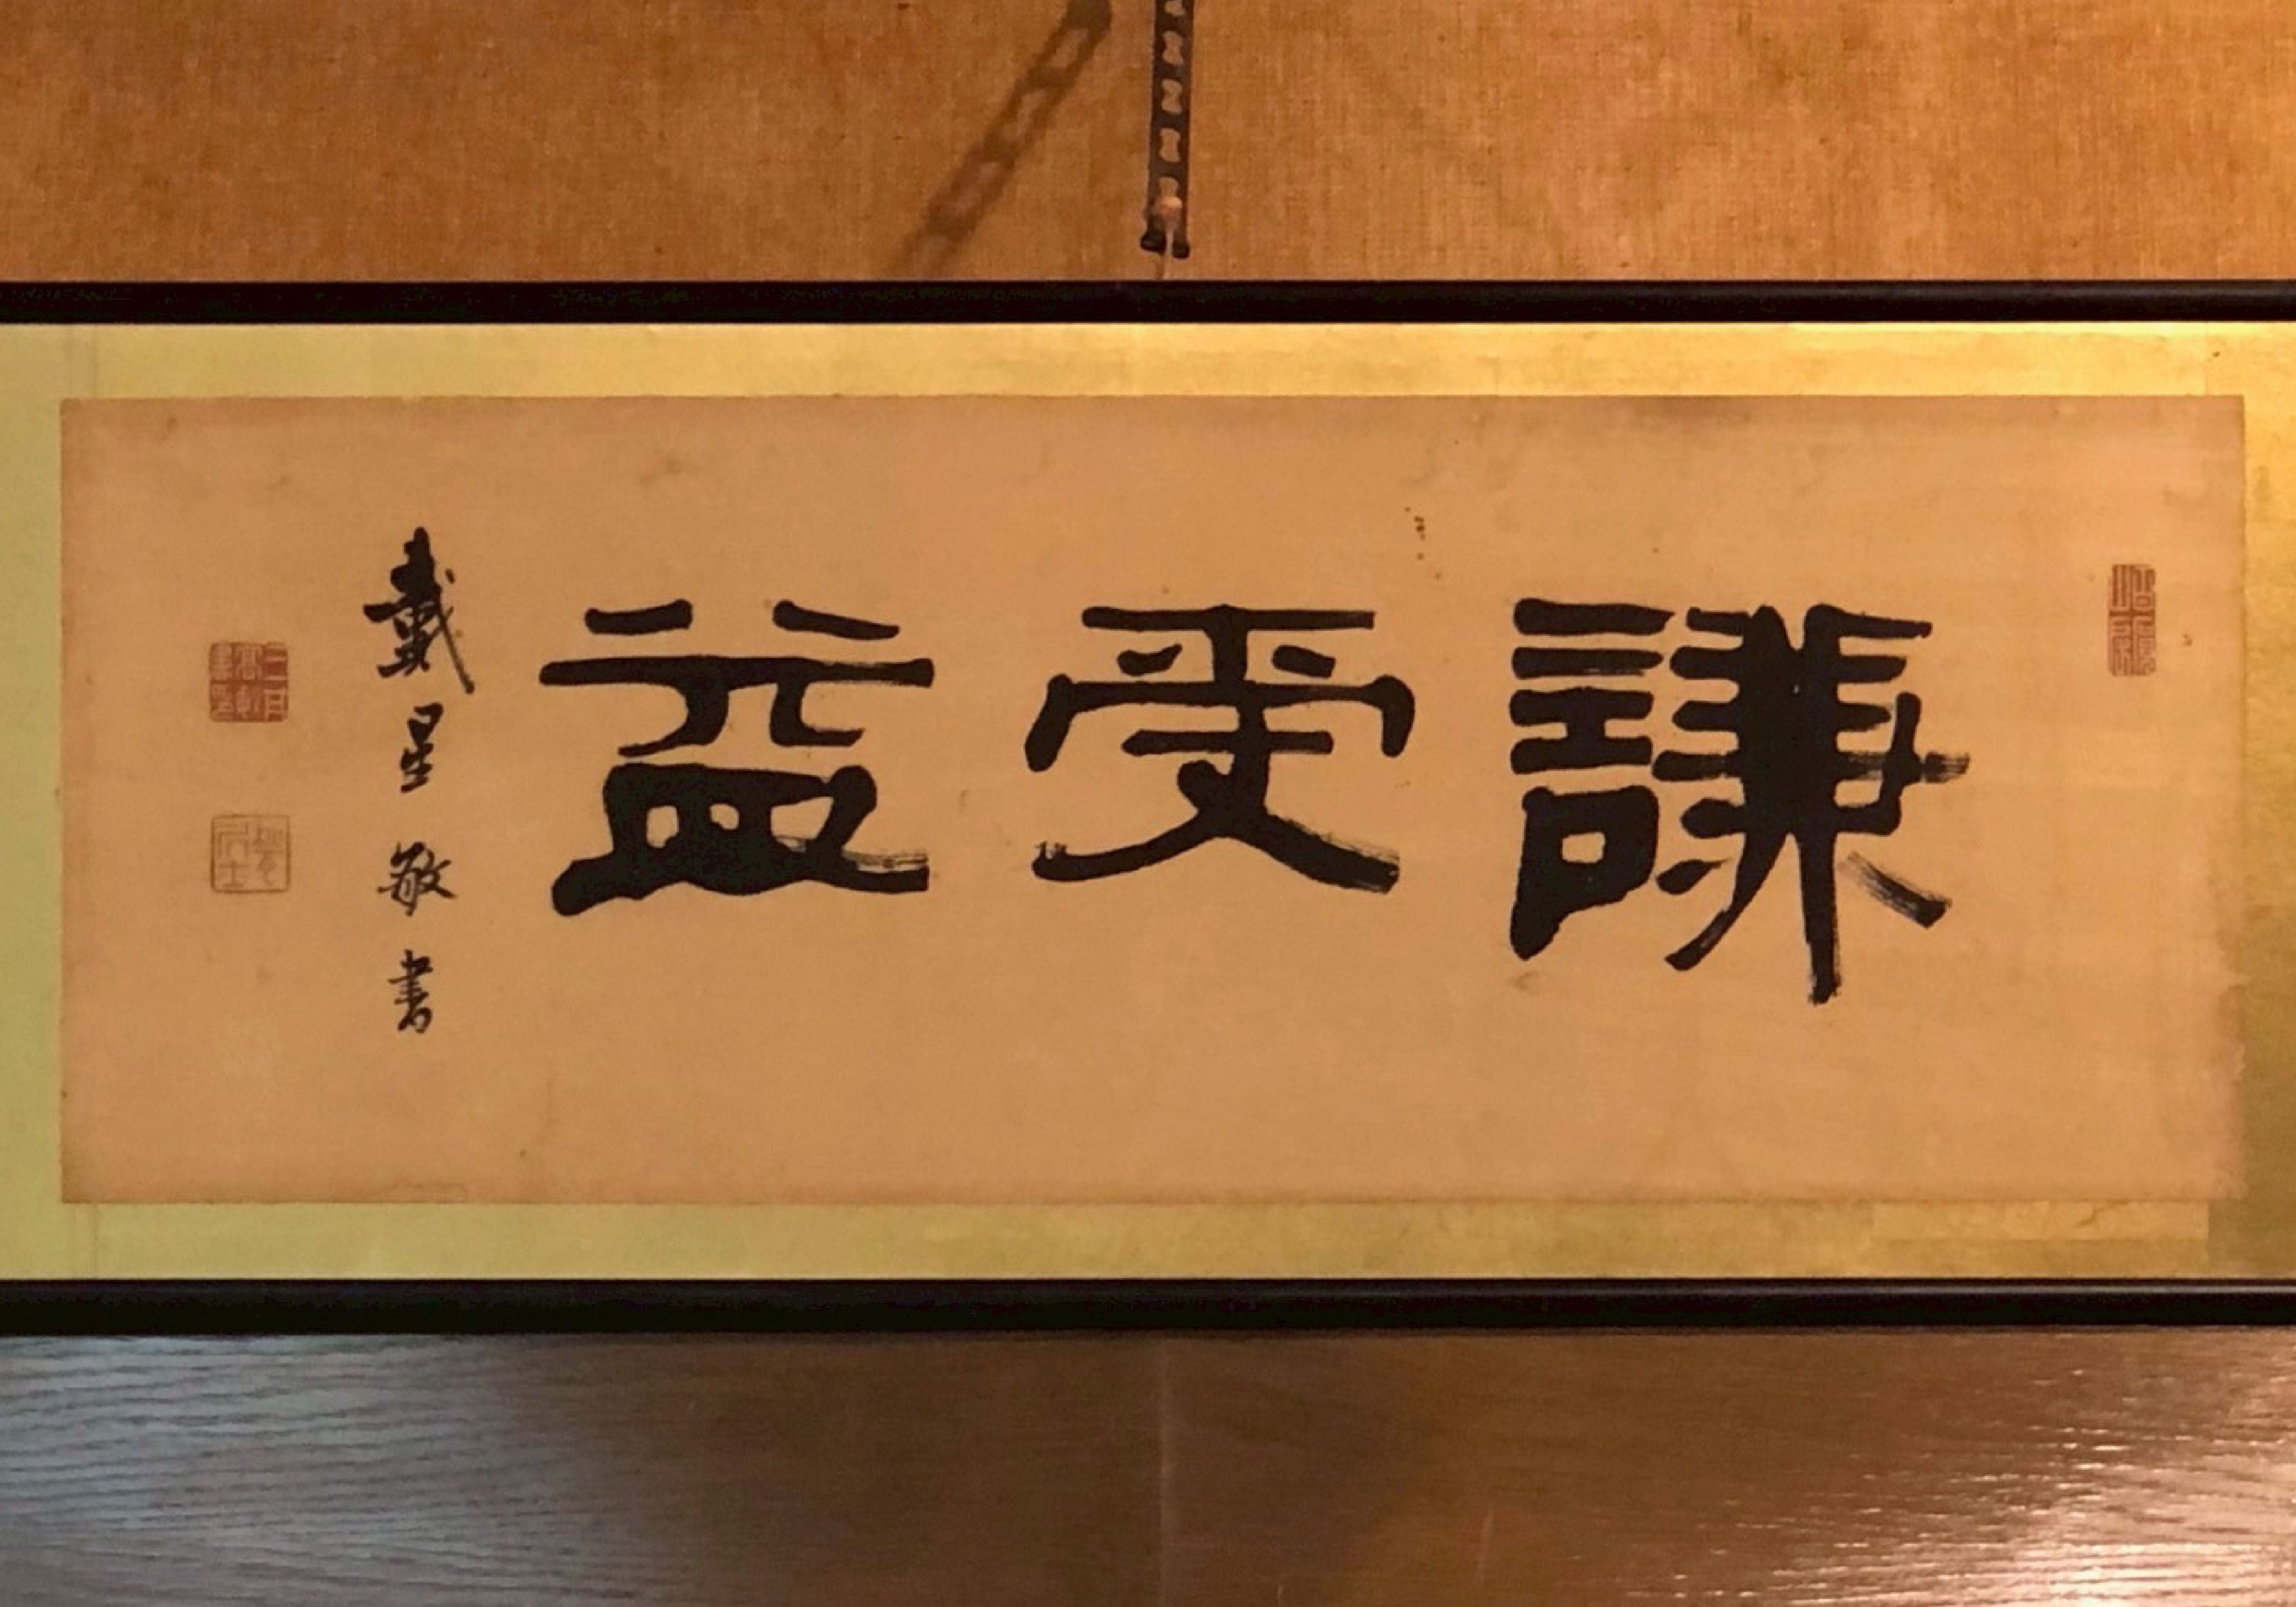 謙受益
戴星敬書